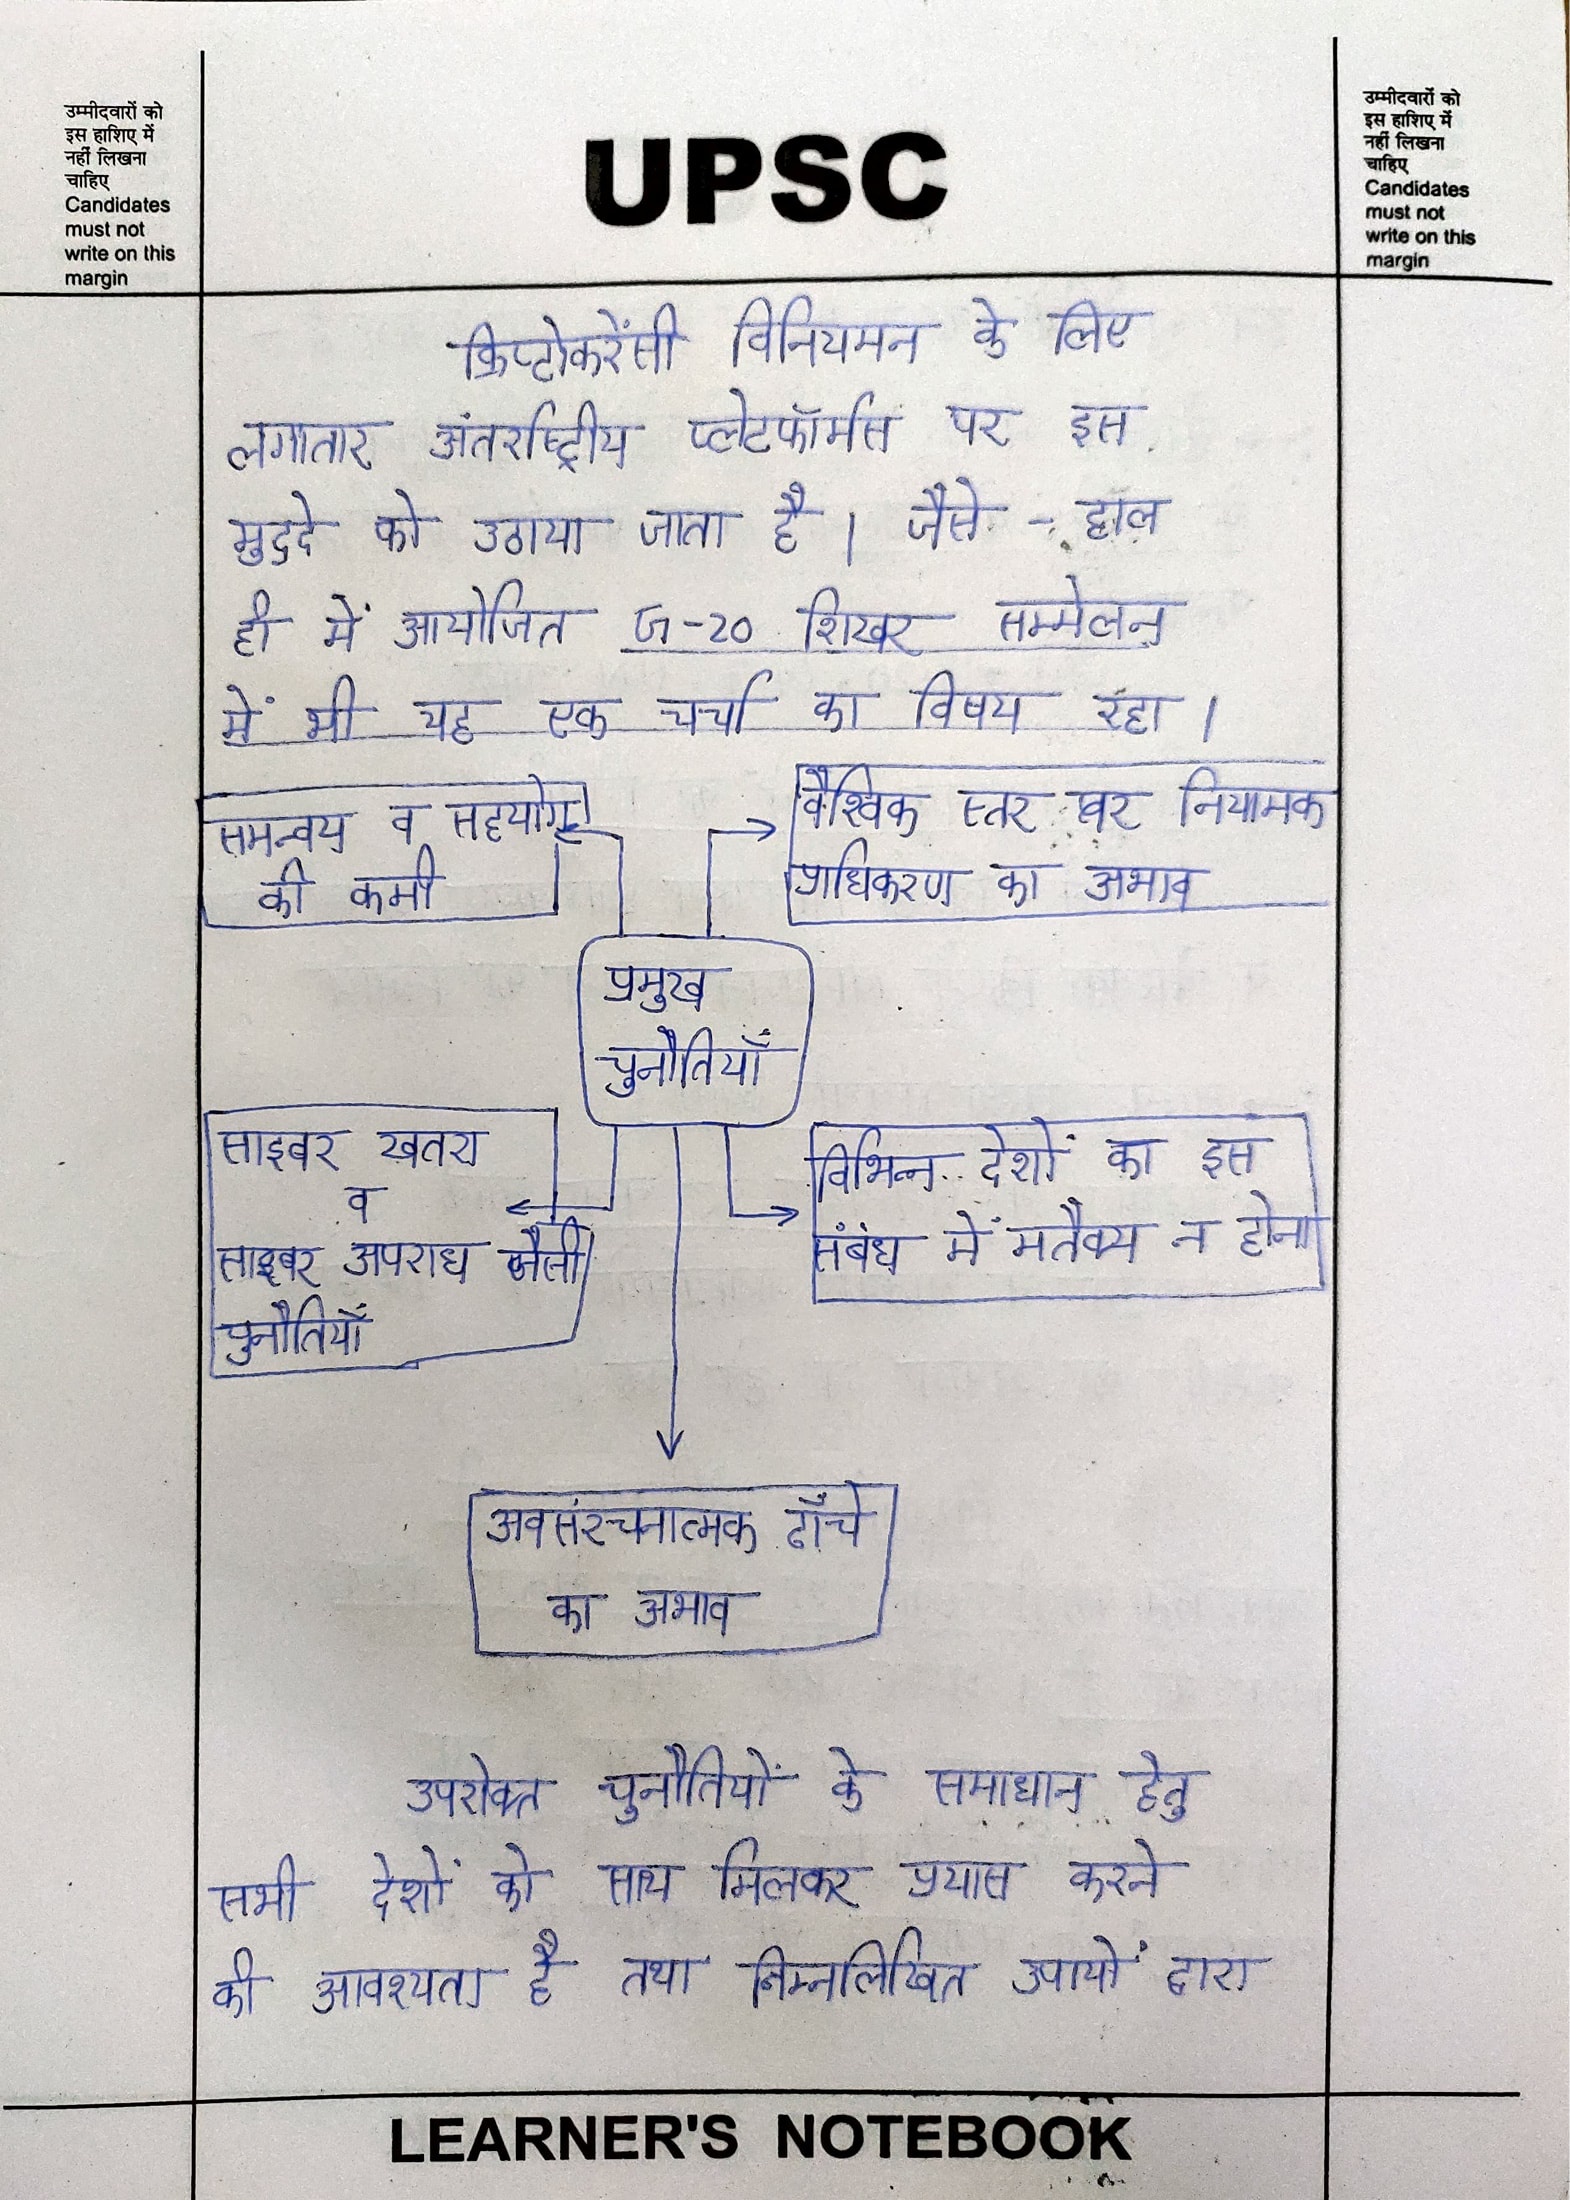 उम्मीदवारों को
इस हाशिए में
नहीं लिखना
चाहिए
Candidates
must not
write on this
margin
UPSC
उम्मीदवारों को
इस हाशिए में
नहीं लिखना
चाहिए
Candidates
must not
write on this
margin
क्रिप्टोकरेंसी विनियमन के लिए
लगातार अंतर्राष्ट्रीय प्लेटफॉर्मस पर इस
मुद्दे को उठाया जाता है । जैसे - हाल
ही में आयोजित G-20 शिखर सम्मेलन
में भी यह एक चर्चा का विषय रहा ।
समन्वय व सहयोग
की कमी
वैश्विक स्तर पर नियामक
प्राधिकरण का अभाव
प्रमुख
चुनौतियाँ
साइबर खतरा
व
साइबर अपराध जैसी
चुनौतियाँ
विभिन्न देशों का इस
संबंध में मतैक्य न होना
अवसंरचनात्मक ढाँचे
का अभाव
उपरोक्त चुनौतियों के समाधान हेतु
सभी देशों को साथ मिलकर प्रयास करने
की आवश्यता है तथा निम्नलिखित उपायों द्वारा
LEARNER'S NOTEBOOK